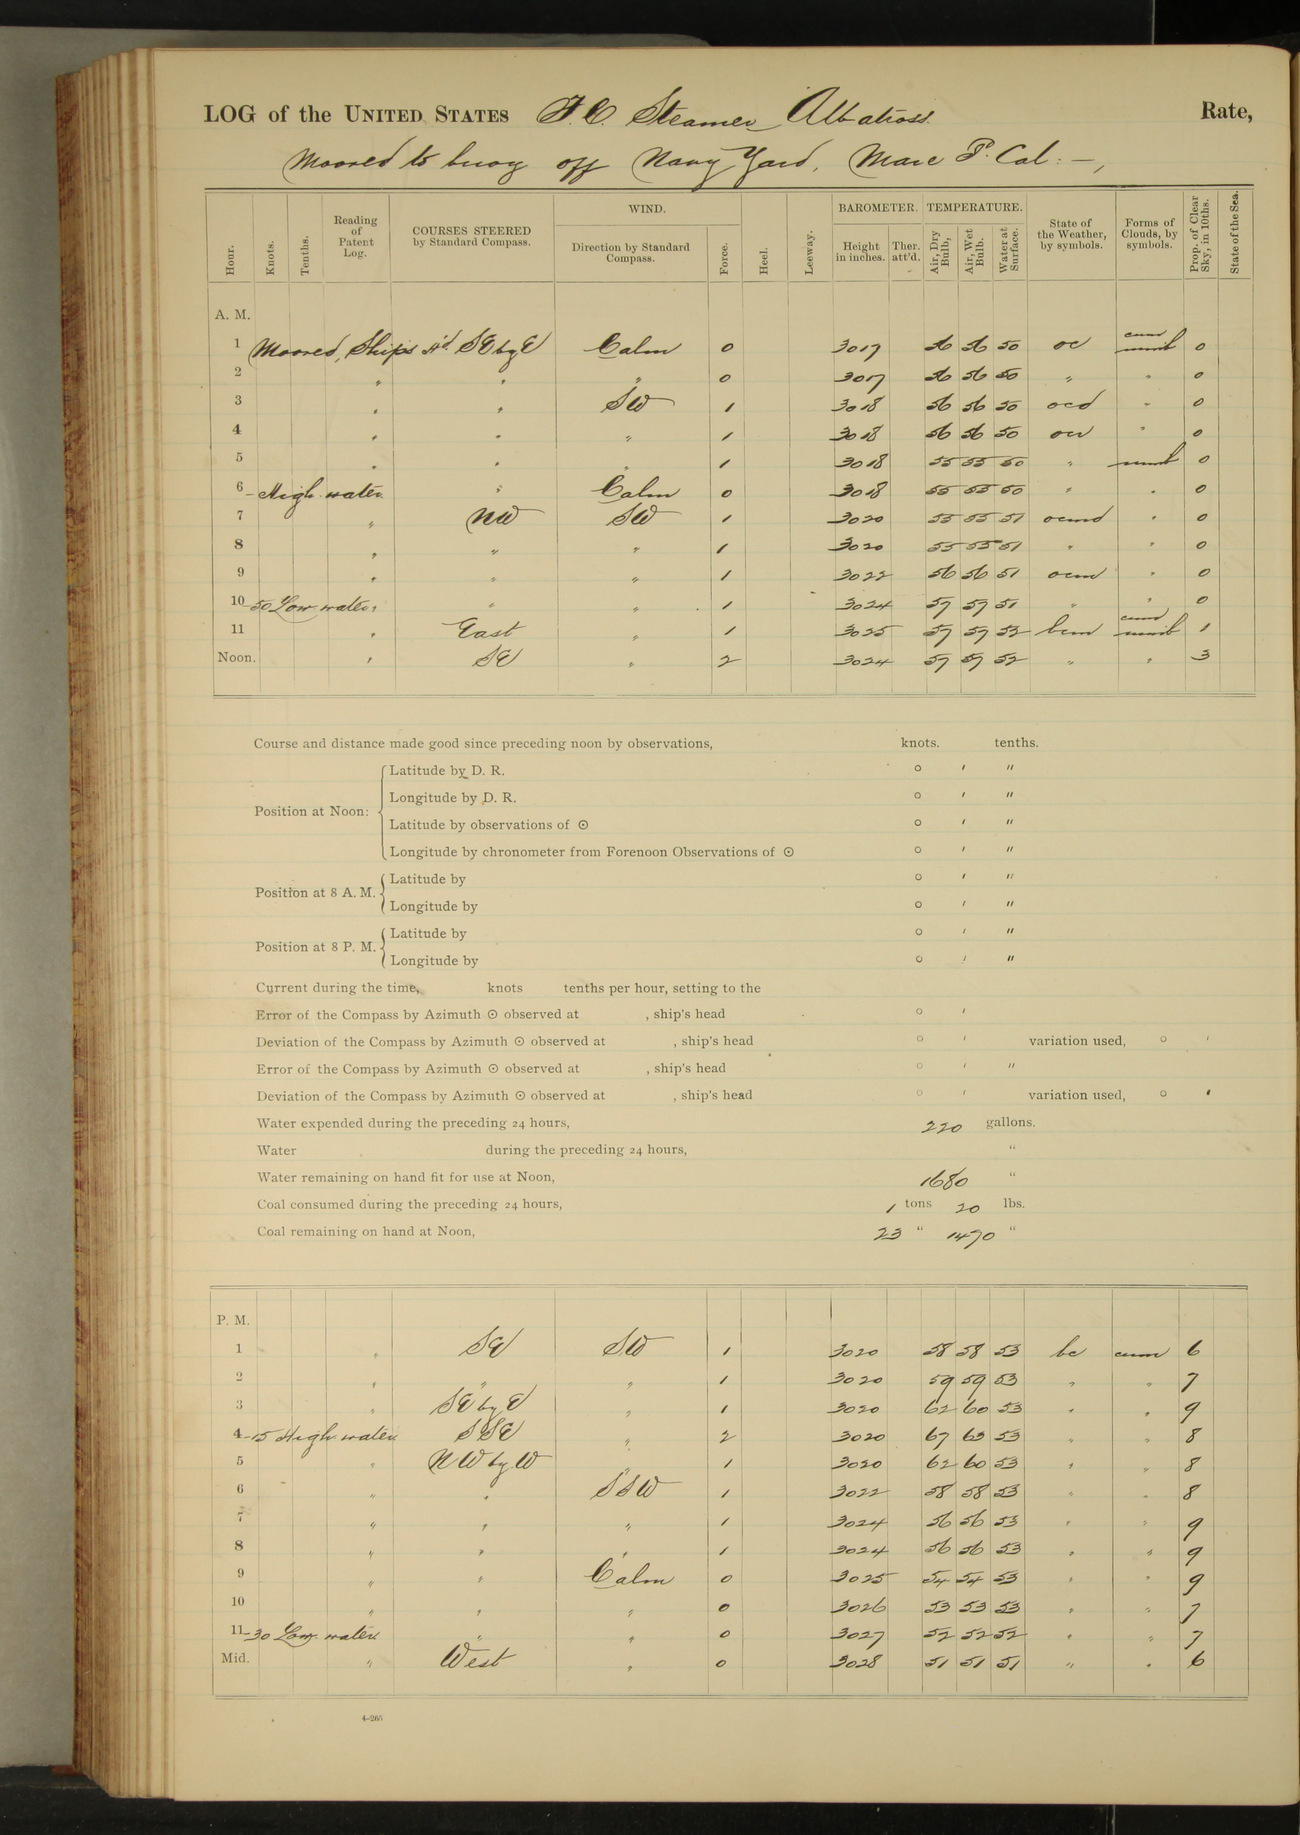 LOG of the UNITED STATES F. C. Steamer Albatross. Rate,
Moored to buoy off Navy Yard, Mare I. Cal: —,
Hour. Knots. Tenths. Reading of Patent Log. COURSES STEERED by Standard Compass. WIND. Direction by Standard Compass. Force. Heel. Leeway. BAROMETER. Height in inches. Ther. att'd. TEMPERATURE. Air, Dry Bulb, Air, Wet Bulb. Water at Surface. State of the Weather, by symbols. Forms of Clouds, by symbols. Prop. of Clear Sky, in 10ths. State of the Sea.
A. M.
1 Moored, Ship's H'd SE by E Calm 0 3017 56 56 50 oc cum nimb 0
2 " " " 0 3017 56 56 50 " " 0
3 " " SW 1 3018 56 56 50 ocd " 0
4 " " " 1 3018 56 56 50 ocr " 0
5 " " " 1 3018 55 55 50 " nimb 0
6 - High water " Calm 0 3018 55 55 50 " " 0
7 " NW SW 1 3020 55 55 51 ocmd " 0
8 " " " 1 3020 55 55 51 " " 0
9 " " " 1 3022 56 56 51 ocm " 0
10 - 50 Low water, " " 1 3024 57 57 51 " " 0
11 " East " 1 3025 57 57 52 bcm cum nimb 1
Noon. " SE " 2 3024 57 57 52 " " 3
Course and distance made good since preceding noon by observations, knots. tenths.
Position at Noon: Latitude by D. R. ° ′ ″
Longitude by D. R. ° ′ ″
Latitude by observations of ☉ ° ′ ″
Longitude by chronometer from Forenoon Observations of ☉ ° ′ ″
Position at 8 A. M. Latitude by ° ′ ″
Longitude by ° ′ ″
Position at 8 P. M. Latitude by ° ′ ″
Longitude by ° ′ ″
Current during the time, knots tenths per hour, setting to the
Error of the Compass by Azimuth ☉ observed at , ship's head ° ′
Deviation of the Compass by Azimuth ☉ observed at , ship's head ° ′ variation used, ° ′
Error of the Compass by Azimuth ☉ observed at , ship's head ° ′ ″
Deviation of the Compass by Azimuth ☉ observed at , ship's head ° ′ variation used, ° ′
Water expended during the preceding 24 hours, 220 gallons.
Water during the preceding 24 hours, "
Water remaining on hand fit for use at Noon, 1680 "
Coal consumed during the preceding 24 hours, 1 tons 20 lbs.
Coal remaining on hand at Noon, 23 " 1470 "
P. M.
1 " SE SW 1 3020 58 58 53 bc cum 6
2 " " " 1 3020 59 59 53 " " 7
3 " SE by E " 1 3020 62 60 53 " " 9
4 - 15 High water SSE " 2 3020 67 65 53 " " 8
5 " NW by W " 1 3020 62 60 53 " " 8
6 " " SSW 1 3022 58 58 53 " " 8
7 " " " 1 3024 56 56 53 " " 9
8 " " " 1 3024 56 56 53 " " 9
9 " " Calm 0 3025 54 54 53 " " 9
10 " " " 0 3026 53 53 53 " " 7
11 - 30 Low water " " 0 3027 52 52 52 " " 7
Mid. " West " 0 3028 51 51 51 " " 6
4-265